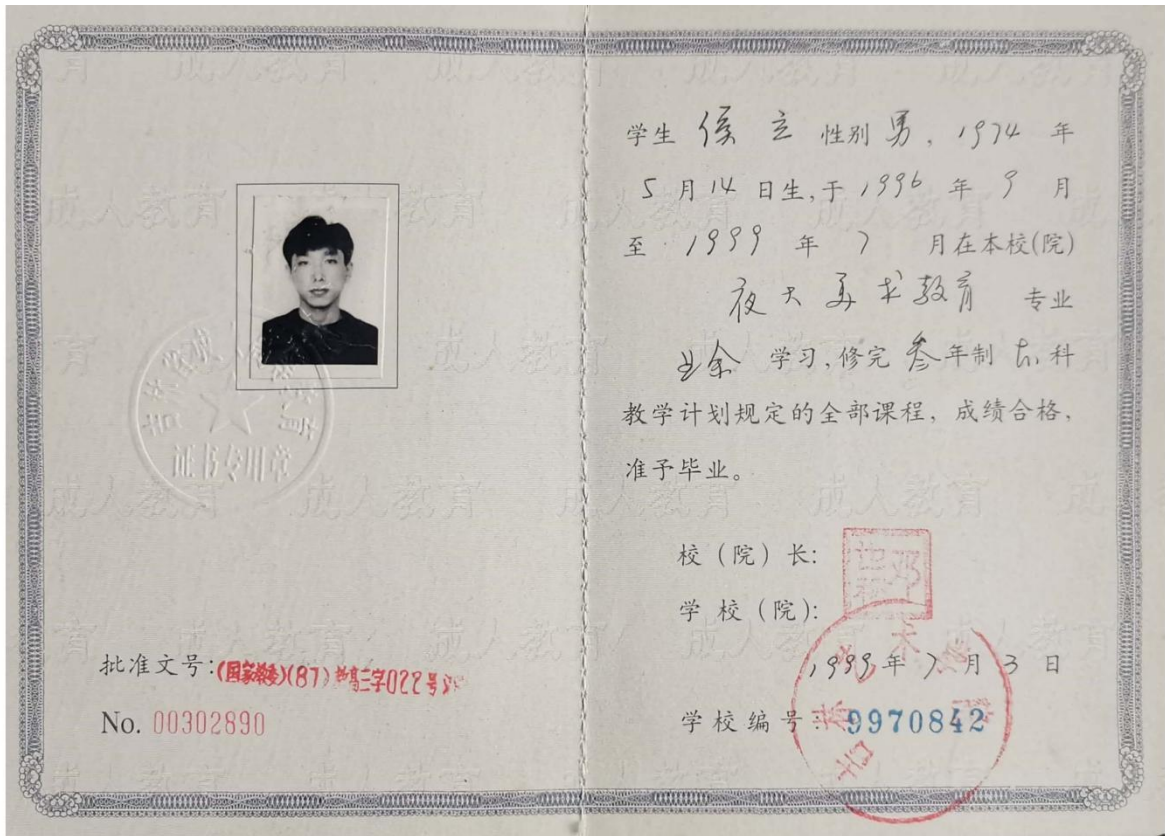 证书专用章
批准文号:(国家教委)(87)教高三字022号
No. 00302890
学生 侯立 性别 男, 1974 年
5 月 14 日生,于 1996 年 9 月
至 1999 年 7 月在本校(院)
夜大美术教育 专业
业余 学习,修完 叁年制 专科
教学计划规定的全部课程,成绩合格,
准予毕业。
校(院)长:
学校(院):
1999年7月3日
学校编号: 9970842